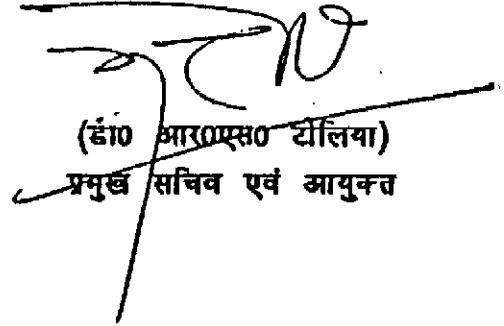 (डॉ0 आर0एस0 टोलिया)
प्रमुख सचिव एवं आयुक्त